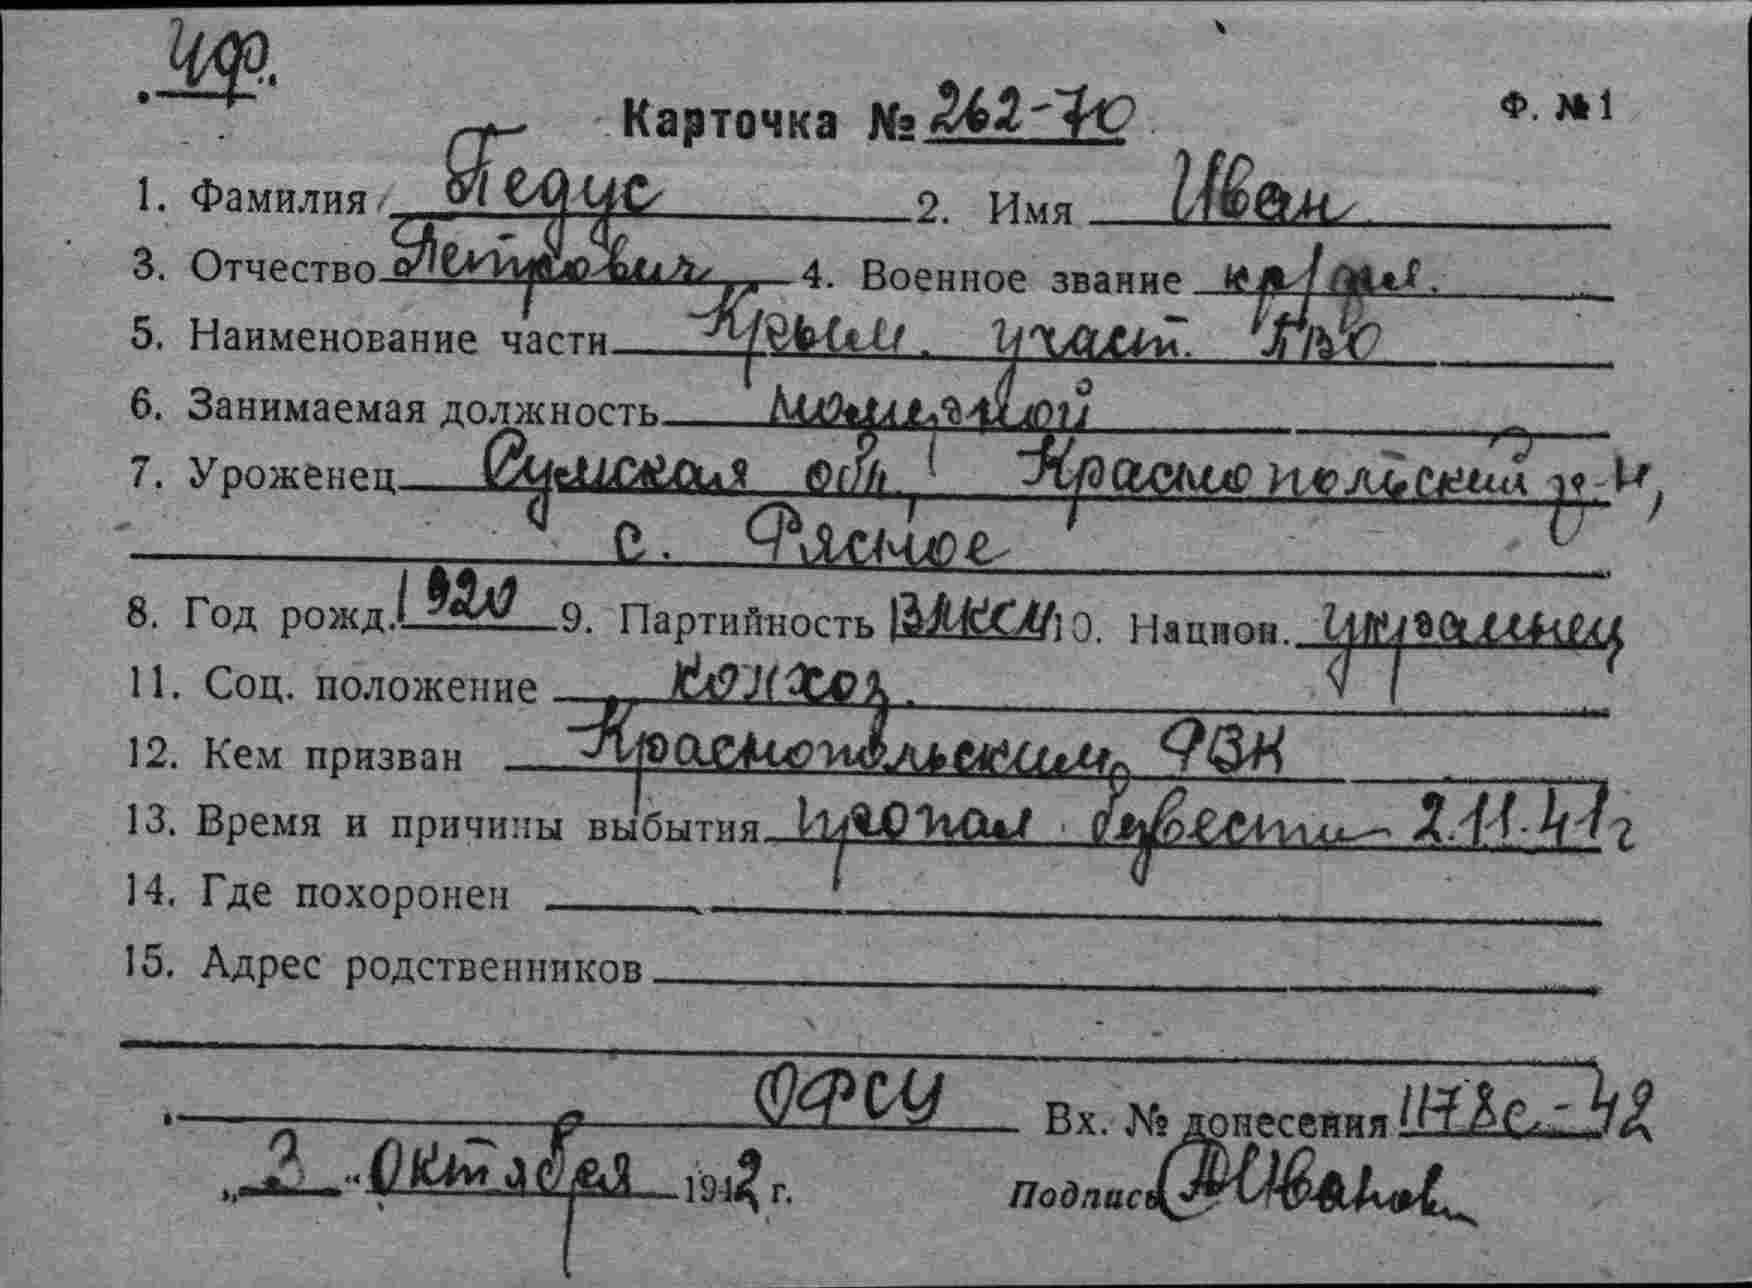 чф.
Карточка № 262-70 Ф. №1
1. Фамилия Гедис 2. Имя Иван
3. Отчество Петрович 4. Военное звание кр/фл.
5. Наименование части Крым. участ.
6. Занимаемая должность
7. Уроженец Сумская обл, Краснопольский р-н,
с. Рясное
8. Год рожд. 1920 9. Партийность ВЛКСМ 10. Национ. украинец
11. Соц. положение колхоз.
12. Кем призван Краснопольским РВК
13. Время и причины выбытия пропал безвести 2.11.41г
14. Где похоронен
15. Адрес родственников
ОФСУ Вх. № донесения 1178с-42
„2" октября 1942 г. Подпись